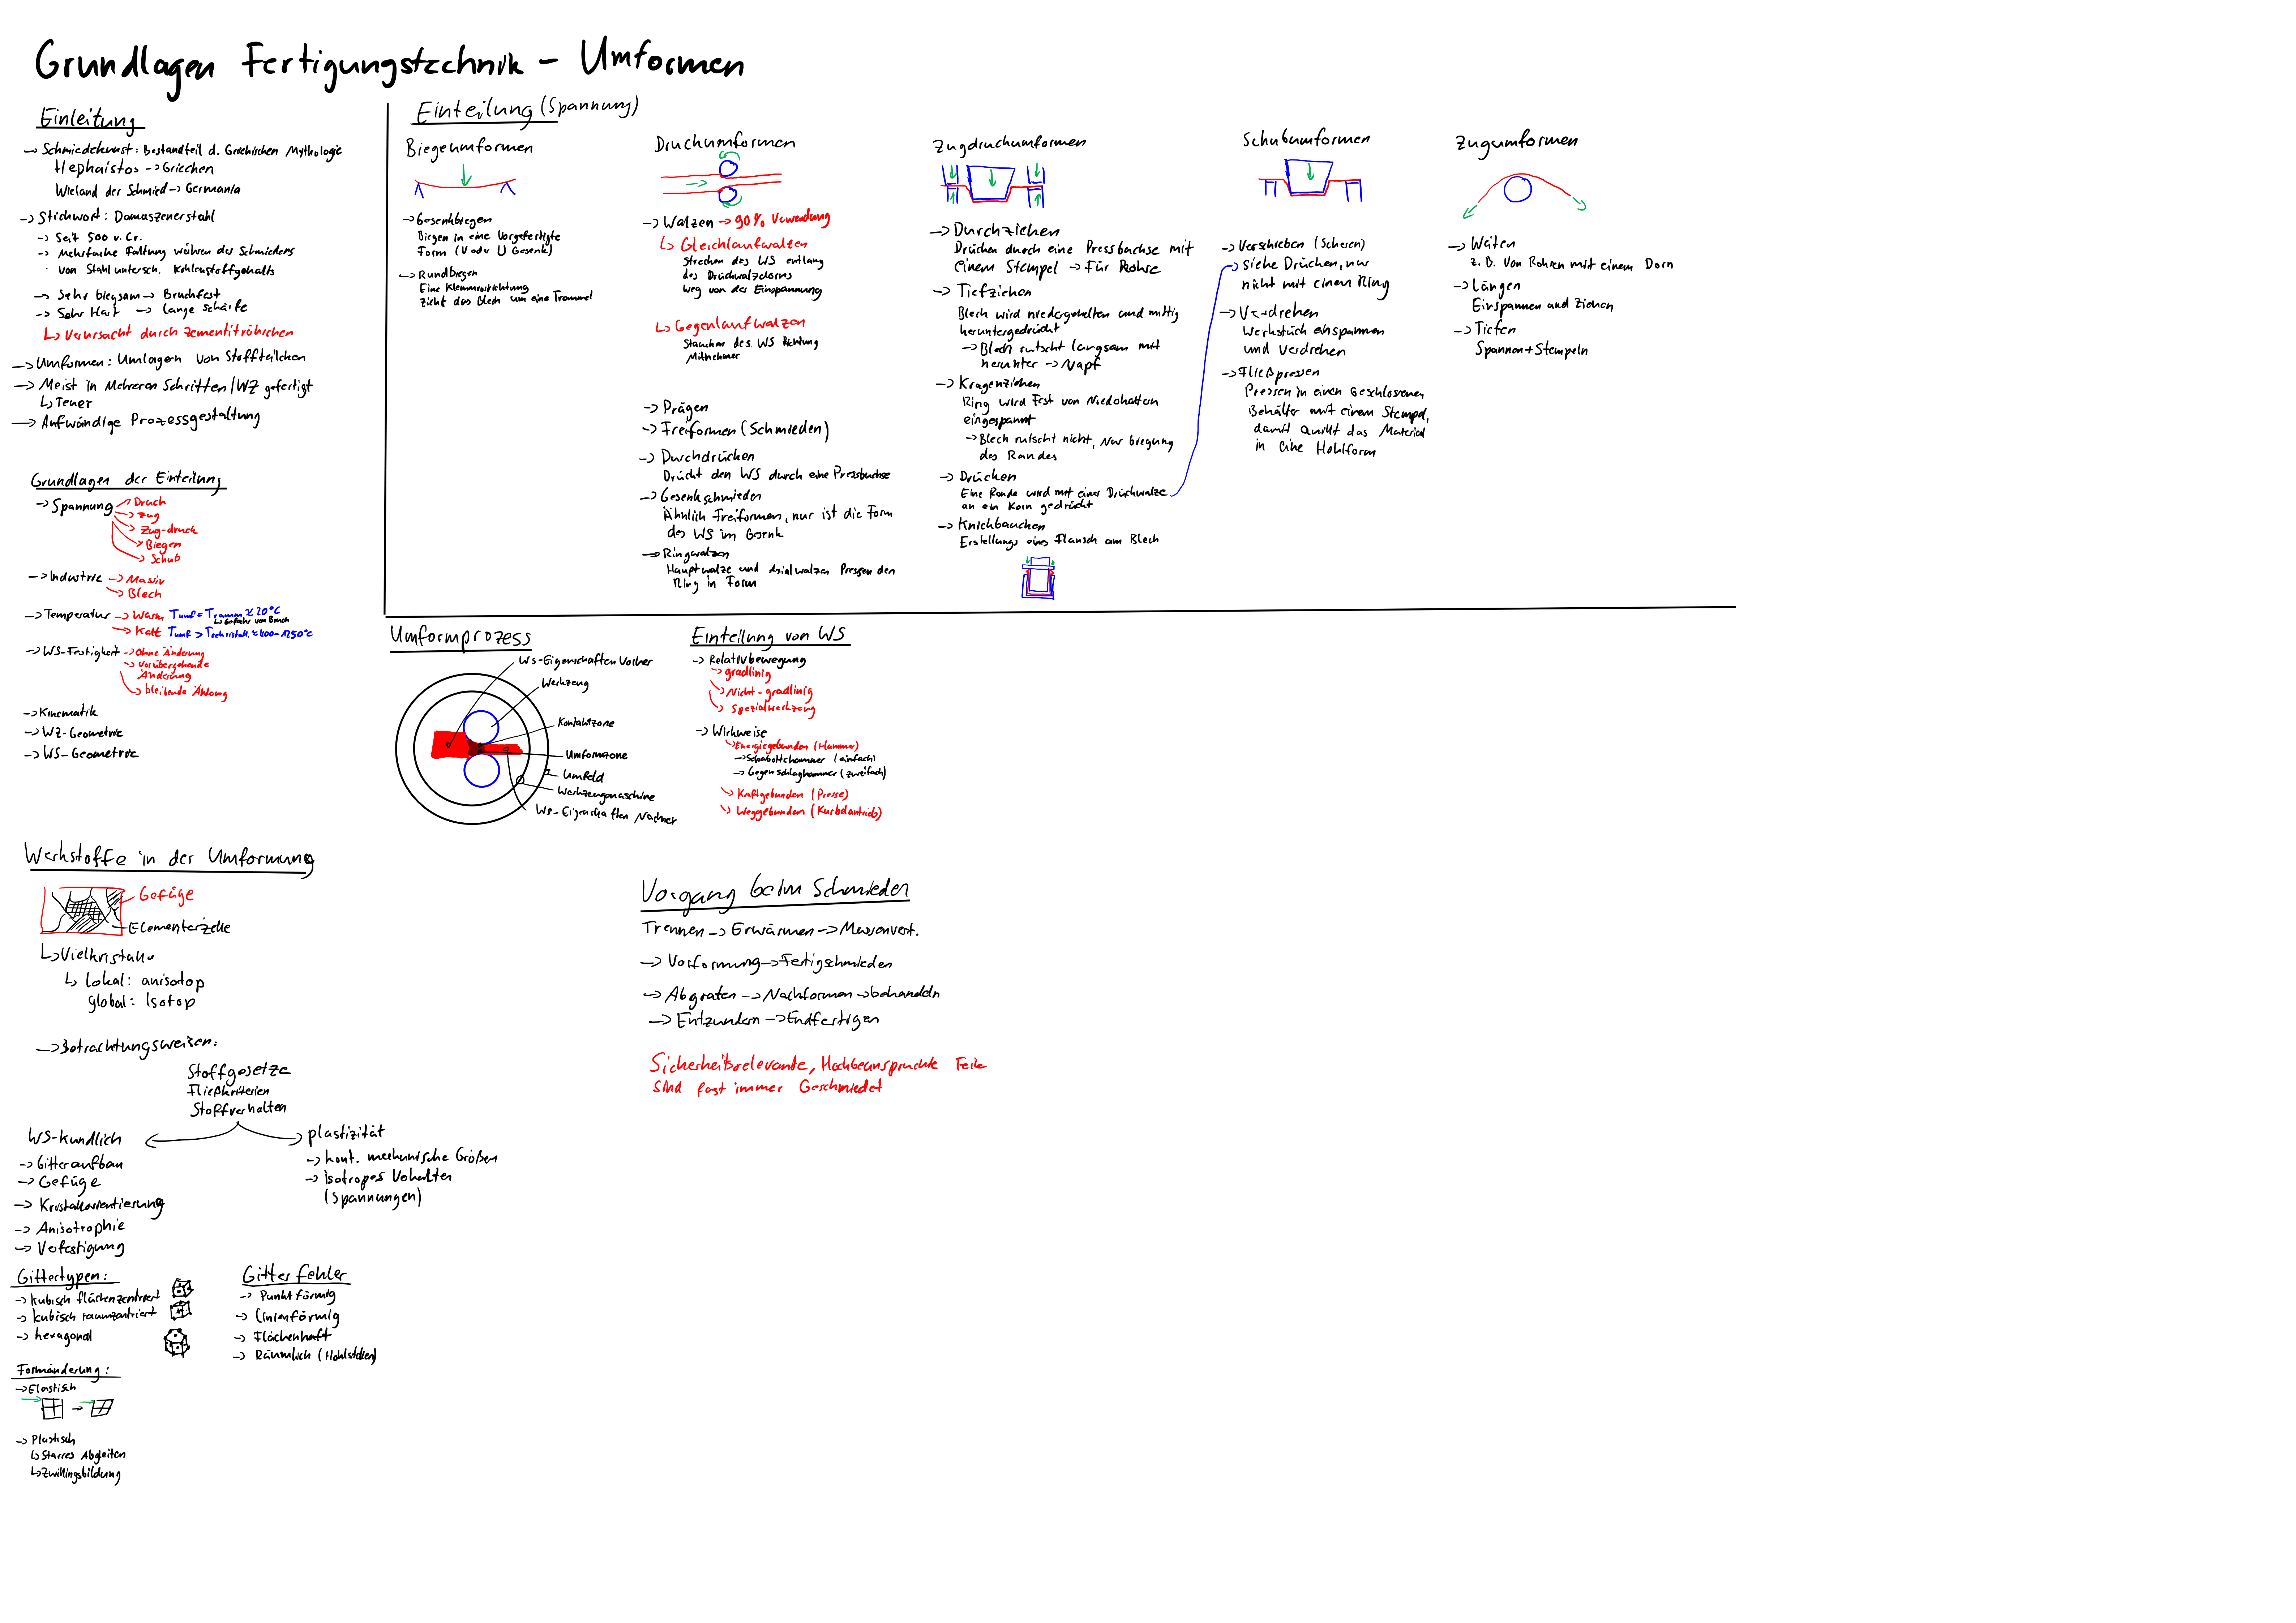 Grundlagen Fertigungstechnik - Umformen
Einleitung
→ Schmiedekunst: Bestandteil d. Griechischen Mythologie
Hephaistos → Griechen
Wieland der Schmied → Germania
→ Stichwort: Damaszenerstahl
→ Seit 500 v. Cr.
→ Mehrfache Faltung währen des Schmiedens
· von Stahl untersch. Kohlenstoffgehalts
→ Sehr biegsam → Bruchfest
→ Sehr Hart → lange Schärfe
↳ Verursacht durch Zementitröhrchen
→ Umformen: Umlagern von Stoffteilchen
→ Meist in Mehreren Schritten/WZ gefertigt
↳ Teuer
→ Aufwändige Prozessgestaltung
Grundlagen der Einteilung
→ Spannung → Druck
→ Zug
→ Zug-druck
→ Biegen
→ Schub
→ Industrie → Massiv
→ Blech
→ Temperatur → Warm Tumf = Traum ≈ 20°C
↳ Gefahr von Bruch
→ Kalt Tumf > Trekristall. ≈ 400-1250°C
→ WS-Festigkeit → Ohne Änderung
→ Vorübergehende
Änderung
→ bleibende Änderung
→ Kinematik
→ WZ-Geometrie
→ WS-Geometrie
Einteilung (Spannung)
Biegeumformen
→ Gesenkbiegen
Biegen in eine Vorgefertigte
Form (V oder U Gesenk)
→ Rundbiegen
Eine Klemmvorrichtung
zieht das Blech um eine Trommel
Druckumformen
→ Walzen → 90% Verwendung
↳ Gleichlaufwalzen
Strecken des WS entlang
des Drückwalzdorns
weg von der Einspannung
↳ Gegenlaufwalzen
Stauchen des WS Richtung
Mitnehmer
→ Prägen
→ Freiformen (Schmieden)
→ Durchdrücken
Drückt den WS durch eine Pressbuchse
→ Gesenkschmieden
Ähnlich Freiformen, nur ist die Form
des WS im Gesenk
→ Ringwalzen
Hauptwalze und Axialwalzen Pressen den
Ring in Form
Zugdruckumformen
→ Durchziehen
Drücken durch eine Pressbuchse mit
einem Stempel → Für Rohre
→ Tiefziehen
Blech wird niedergehalten und mittig
heruntergedrückt
→ Blech rutscht langsam mit
herunter → Napf
→ Kragenziehen
Ring wird Fest von Niederhaltern
eingespannt
→ Blech rutscht nicht, nur biegung
des Randes
→ Drücken
Eine Ronde wird mit einer Drückwalze
an ein Korn gedrückt
→ Knickbauchen
Erstellung eines Flansch am Blech
Schubumformen
→ Verschieben (Scheren)
→ siehe Drücken, nur
nicht mit einem Ring
→ Verdrehen
Werkstück einspannen
und Verdrehen
→ Fließpressen
Pressen in einen Geschlossenen
Behälter mit einem Stempel,
damit Quillt das Material
in eine Hohlform
Zugumformen
→ Weiten
z.B. Von Rohren mit einem Dorn
→ Längen
Einspannen und Ziehen
→ Tiefen
Spannen + Stempeln
Umformprozess
WS-Eigenschaften Vorher
Werkzeug
Kontaktzone
Umformzone
Umfeld
Werkzeugmaschine
WS-Eigenschaften Nachher
Einteilung von WS
→ Relativbewegung
→ gradlinig
→ Nicht-gradlinig
→ Spezialwerkzeug
→ Wirkweise
→ Energiegebunden (Hammer)
→ Schabottehammer (einfach)
→ Gegenschlaghammer (zweifach)
→ Kraftgebunden (Presse)
→ Weggebunden (Kurbelantrieb)
Werkstoffe in der Umformung
Gefüge
Elementarzelle
↳ Vielkristall
↳ Lokal: anisotop
global: Isotop
→ Betrachtungsweisen:
Stoffgesetze
Fließkriterien
Stoffverhalten
WS-kundlich
→ Gitteraufbau
→ Gefüge
→ Kristallorientierung
→ Anisotrophie
→ Verfestigung
plastizität
→ kont. mechanische Größen
→ isotropes Verhalten
(Spannungen)
Gittertypen:
→ kubisch flächenzentriert
→ kubisch raumzentriert
→ hexagonal
Gitterfehler
→ Punktförmig
→ Linienförmig
→ Flächenhaft
→ Räumlich (Hohlstellen)
Formänderung:
→ Elastisch
→ Plastisch
↳ Starres Abgleiten
↳ Zwillingsbildung
Vorgang beim Schmieden
Trennen → Erwärmen → Massenvert.
→ Vorformung → Fertigschmieden
→ Abgraten → Nachformen → behandeln
→ Entzundern → Endfertigen
Sicherheitsrelevante, Hochbeanspruchte Teile
sind fast immer Geschmiedet